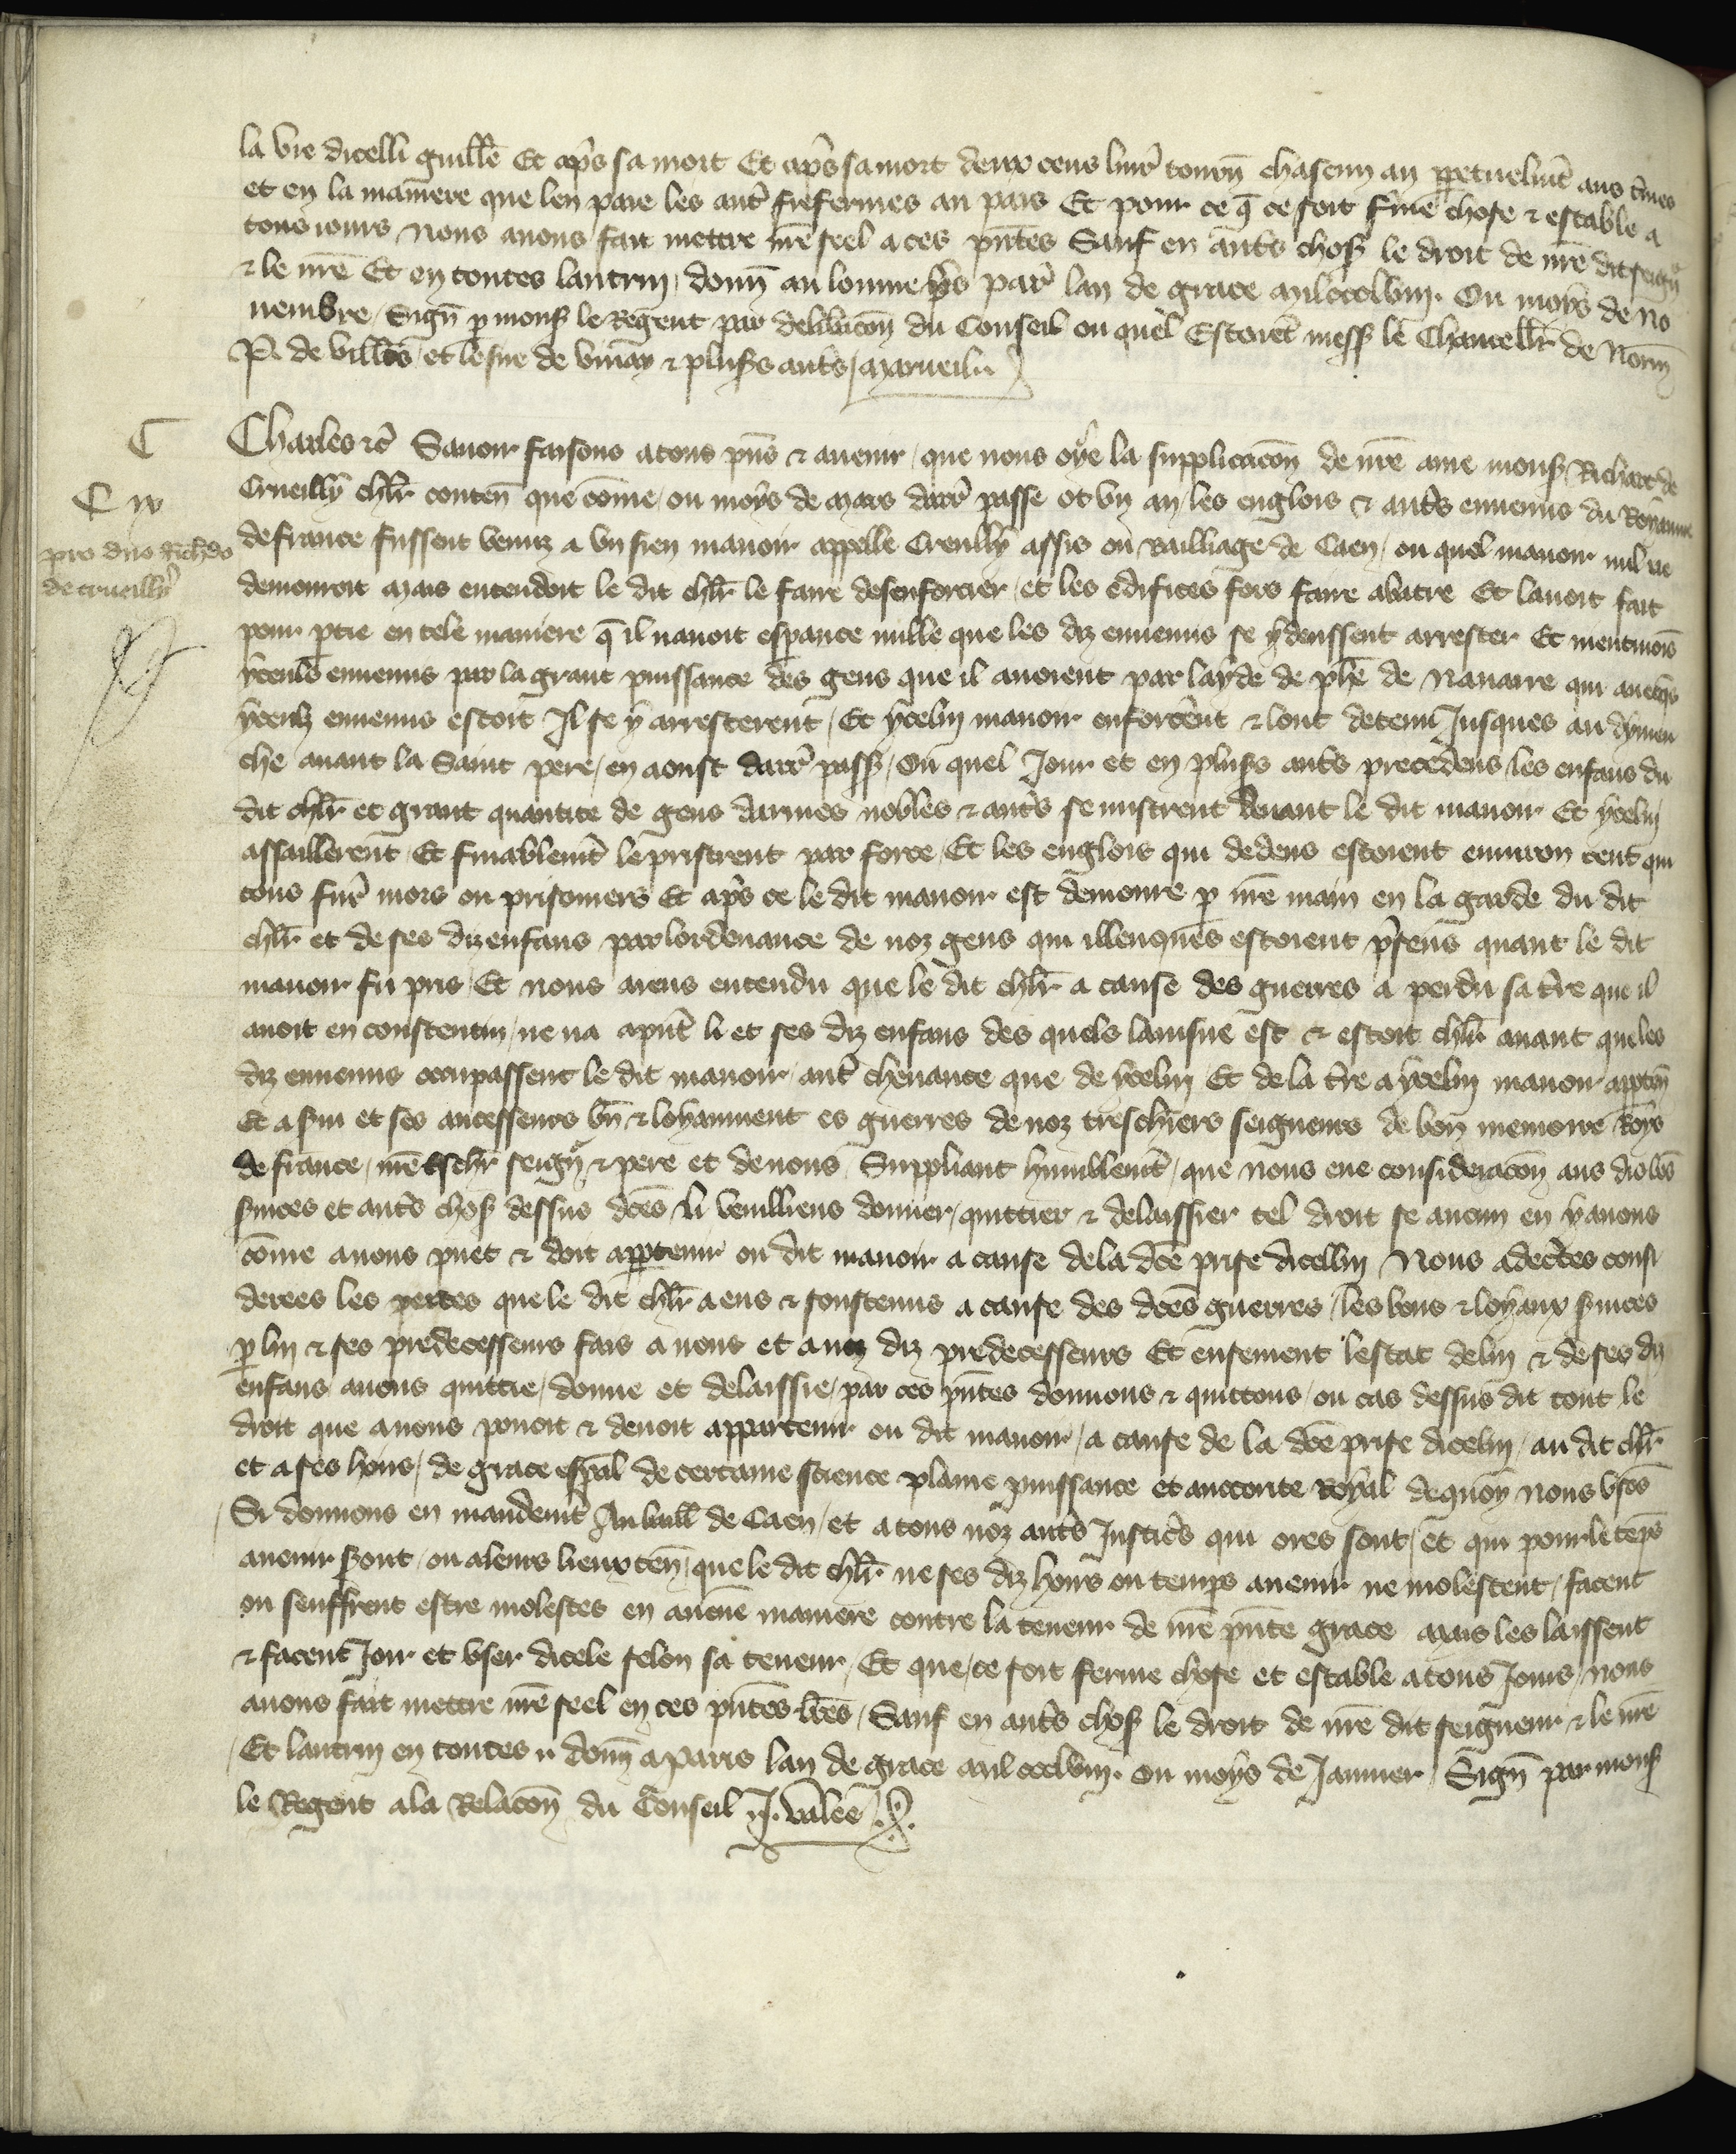 la vie dicelli guille Et aps sa mort Et aps sa mort deux cens livr tourn chascun an ppetuelmt aus tmes
et en la maniere que len paie les autr fiefermes au pais Et pour ce q ce soit fme chose & estable a
tous iours Nous avons fait mettre nre seel a ces pntes Sauf en auts chos le droit de nre dit seigr
& le nre Et en toutes lautruy donn au louvre ps par lan de grace mil ccclviii. Ou moys de no
vembre Sign p mons le Regent par delibacon du Conseil ou quel Estoiet mess le Chancellr de Norm
P. de villrs et lesne de vinay & plusrs auts Marueil
C
Charles &c Savoir faisons a tous pns & avenir que nous oye la supplicacon de nre ame mons Richart de
C iv
Crueilly chlr conten que come ou moys de mars darr passe ot un an les englois & auts ennemis du Royaume
pro dno Richdo
de crueilly
de france fussent venuz a un sien manoir appelle Creully assis ou bailliage de Caen ou quel manoir nul ne
demouroit mais entendoit le dit chlr le faire desenforcier et les edifices fors faire abatre Et lavoit fait
pour ptie en tele maniere q il navoit espance nulle que les diz ennemis se y deussent arrester Et nientmois
yceuls ennemis par la grant puissance des gens que il avoient par layde de phe de Navarre qui avecqs
yceulz ennemis estoit Il se y arresterent Et ycelui manoir enforcerent & lont detenu Jusques au dymen
che avant la Saint pere en aoust darr pass Ou quel Jour et en plusrs auts precedens les enfans du
dit chlr et grant quantite de gens darmes nobles & auts se mistrent devant le dit manoir Et ycelui
assaillerent Et finablemt le pristrent par force Et les englois qui dedens estoient environ cent qui
tous fur mors ou prisonniers Et aps ce le dit manoir est demoure p nre main en la garde du dit
chlr et de ses diz enfans par lordenance de noz gens qui illeuques estoient psens quant le dit
manoir fu pris Et nous aiens entendu que le dit chlr a cause des guerres a perdu sa tre que il
avoit en constentin ne na apnt li et ses diz enfans des quels lainsne est & estoit chlr avant que les
diz ennemis occupassent le dit manoir autr chevance que de ycelui Et de la tre a ycelui manoir appten
Et a svi et ses ancesseurs bn & loyaument es guerres de noz treschiers seigneurs de bon memoire Roys
de france nre tschr seigr & pere et de nous Suppliant humblemt que nous eue consideracon aus dis bos
svices et auts chos dessus dces li veuilliens donner quittier & delaissier tel droit se aucun en y avons
come a nous puet & doit apptenir ou dit manoir a cause de la dce prise dicelui Nous adectes consi
derees les pertes que le dit chlr a eus & soustenus a cause des dces guerres les bons & loyaux svices
p lui & ses predecesseurs fais a nous et a noz diz predecesseurs Et ensement lestat de lui & de ses diz
enfans avons quittie donne et delaissie par ces pntes donnons & quittons ou cas dessus dit tout le
droit que a nous povoit & devoit appartenir ou dit manoir a cause de la dce prise dicelui au dit chlr
et a ses hoirs de grace espal de certaine science plaine puissance et auctorite Royal de quoy nous usos
Si donnons en mandemt Au baill de Caen et a tous noz auts Justics qui ores sont et qui pour le teps
avenir sont ou a leurs lieux ten que le dit chlr ne ses diz hoirs ou temps avenir ne molestent facent
ou seuffrent estre molestes en aucune maniere contre la teneur de nre pnte grace mais les laissent
& facent Joir et user dicele selon sa teneur Et que ce soit ferme chose et estable a tous Jours nous
avons fait mettre nre seel en ces pntes lres Sauf en auts chos le droit de nre dit seigneur & le nre
Et lautruy en toutes donn a Paris lan de grace mil ccclviii. ou moys de Janvier Sign par mons
le Regent a la Relacon du Conseil J. Valee